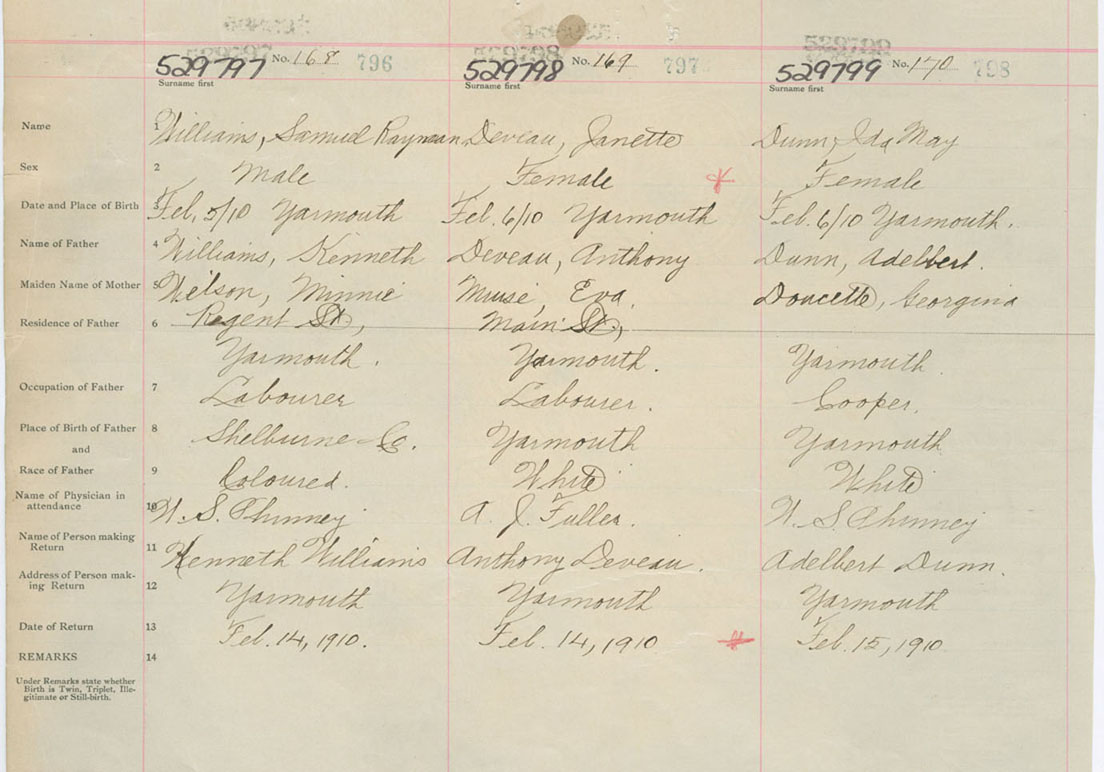 529797 No. 168 796 529798 No. 169 797 529799 No. 170 798
Surname first Surname first Surname first
Name 1 Williams, Samuel Deveau, Janette Dunn, Ida May
Sex 2 Male Female Female
Date and Place of Birth 3 Feb. 5/10 Yarmouth Feb. 6/10 Yarmouth Feb. 6/10 Yarmouth.
Name of Father 4 Williams, Kenneth Deveau, Anthony Dunn, Adelbert.
Maiden Name of Mother 5 Wilson, Minnie Muise, Eva. Doucette, Georgina
Residence of Father 6 Regent St., Main St.,
Yarmouth. Yarmouth. Yarmouth
Occupation of Father 7 Labourer Labourer. Cooper.
Place of Birth of Father 8 Shelburne Co. Yarmouth Yarmouth
and
Race of Father 9 Coloured. White White
Name of Physician in
attendance 10 W. S. Phinney A. J. Fuller. W. S. Phinney
Name of Person making
Return 11 Kenneth Williams Anthony Deveau. Adelbert Dunn.
Address of Person mak-
ing Return 12 Yarmouth Yarmouth Yarmouth
Date of Return 13 Feb. 14, 1910. Feb. 14, 1910 Feb. 15, 1910
REMARKS 14
Under Remarks state whether
Birth is Twin, Triplet, Ille-
gitimate or Still-birth.